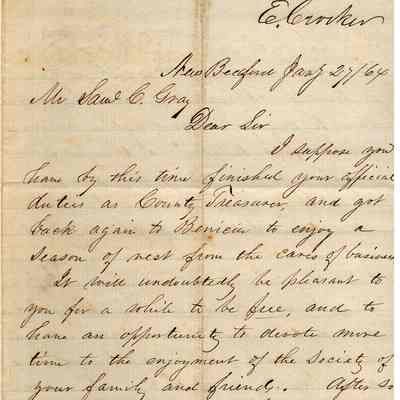 E. Crocker
New Bedford Jany 27/64
Mr Saml C. Gray
Dear Sir
I suppose you
have by this time finished your official
duties as County Treasurer, and got
back again to Benicia to enjoy a
season of rest from the cares of business
It will undoubtedly be pleasant to
you for a while to be free, and to
have an opportunity to devote more
time to the enjoyment of the Society of
your family and friends. After so